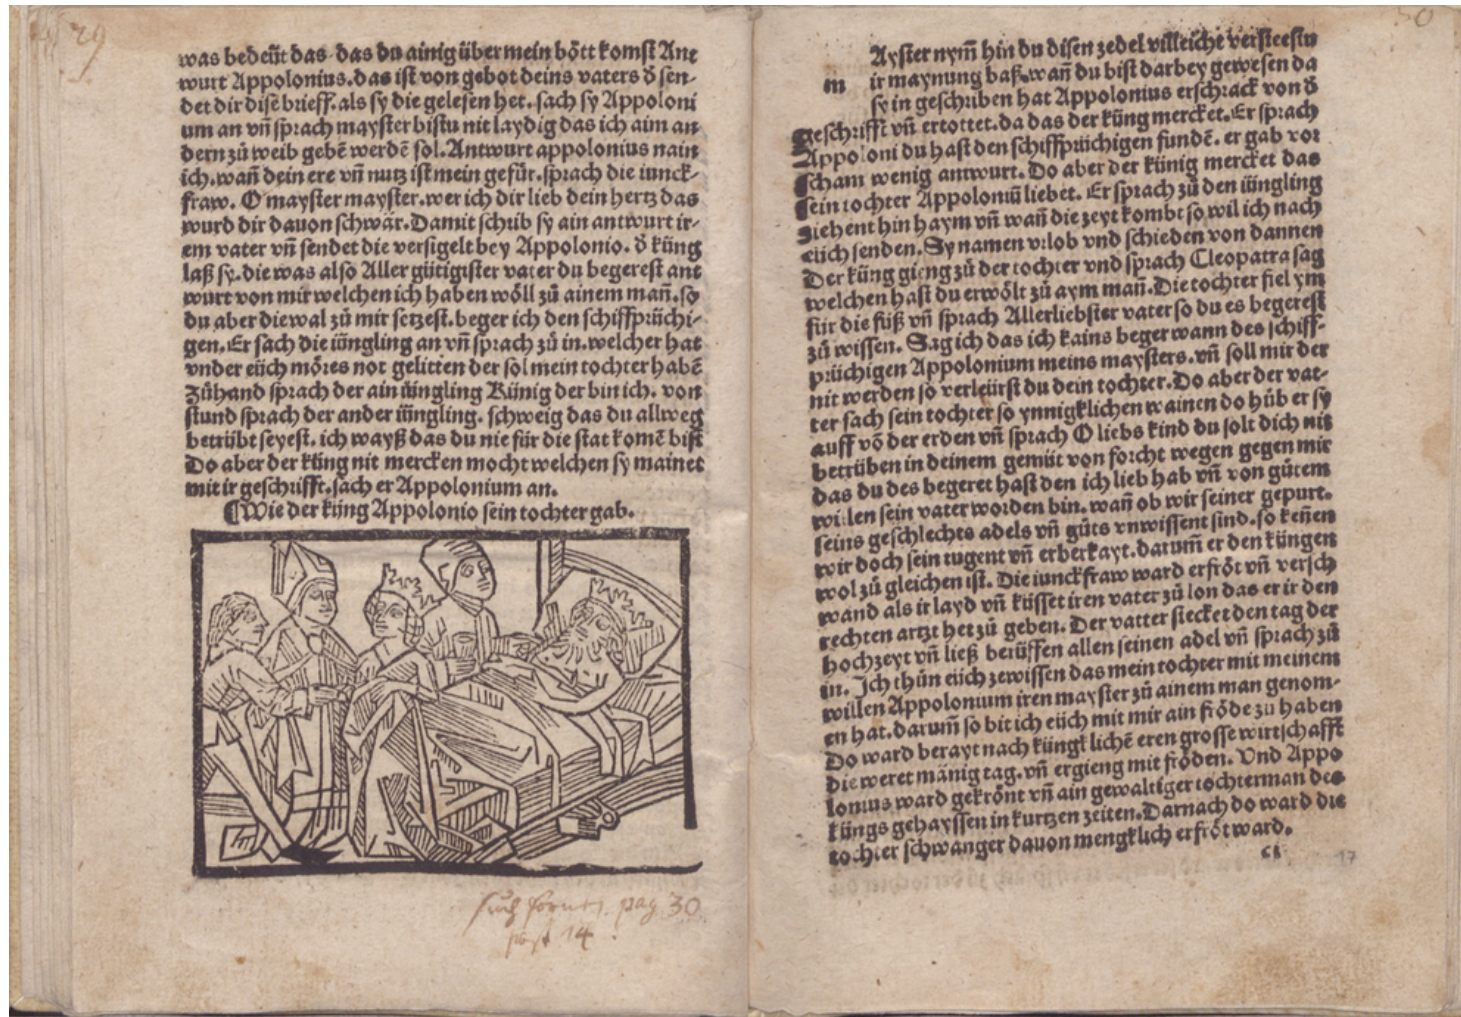 29
was bedeüt das das du ainig über mein bött komst Ant
wurt Appolonius. das ist von gebot deins vaters d̕ sen-
det dir disē brieff. als sy die gelesen het. sach sy Appoloni
um an vn̄ sprach mayster bistu nit laydig das ich aim an
dern zů weib gebē werdē sol. Antwurt appolonius nain
ich. wan̄ dein ere vn̄ nutz ist mein gefür. sprach die iunck-
fraw. O mayster mayster. wer ich dir lieb dein hertz das
wurd dir dauon schwär. Damit schrib sy ain antwurt ir-
em vater vn̄ sendet die versigelt bey Appolonio. d̕ küng
laß sy. die was also Aller gütigister vater du begerest ant
wurt von mir welchen ich haben wöll zů ainem man̄. so
du aber die wal zů mir setzest. beger ich den schiffprüchi-
gen. Er sach die iüngling an vn̄ sprach zů in. welcher hat
vnder eüch möres not gelitten der sol mein tochter habē
Zůhand sprach der ain iüngling Künig der bin ich. von
stund sprach der ander iüngling. schweig das du allweg
betrübt seyest. ich wayß das du nie für die stat komē bist
Do aber der küng nit mercken mocht welchen sy mainet
mit ir geschrifft. sach er Appolonium an.
¶ Wie der küng Appolonio sein tochter gab.
pag 30
14
30
Ayster nym̄ hin du disen zedel villeicht versteestu
m ir maynung baß. wan̄ du bist darbey gewesen da
sy in geschriben hat Appolonius erschrack von d̕
geschrifft vn̄ ertottet. da das der küng mercket. Er sprach
Appoloni du hast den schiffprüchigen fundē. er gab vor
scham wenig antwurt. Do aber der künig mercket das
sein tochter Appoloniū liebet. Er sprach zů den iüngling
ziehent hin haym vn̄ wan̄ die zeyt kombt so wil ich nach
eüch senden. Sy namen vrlob vnd schieden von dannen
Der küng gieng zů der tochter vnd sprach Cleopatra sag
welchen hast du erwölt zů aym man̄. Die tochter fiel ym
für die füß vn̄ sprach Allerliebster vater so du es begerest
zů wissen. Sag ich das ich kains beger wann des schiff-
prüchigen Appolonium meins maysters. vn̄ soll mir der
nit werden so verleürst du dein tochter. Do aber der vat-
ter sach sein tochter so ynnigklichen wainen do hůb er sy
auff vō der erden vn̄ sprach O liebs kind du solt dich nit
betrüben in deinem gemüt von forcht wegen gegen mir
das du des begeret hast den ich lieb hab vn̄ von gütem
willen sein vater worden bin. wan̄ ob wir seiner gepurt.
seins geschlechts adels vn̄ gůts vnwissent sind. so keñen
wir doch sein tugent vn̄ erberkayt. darum̄ er den küngen
wol zů gleichen ist. Die iunckfraw ward erfröt vn̄ versch
wand als ir layd vn̄ küsset iren vater zů lon das er ir den
rechten artzt het zů geben. Der vatter stecket den tag der
hochzeyt vn̄ ließ berüffen allen seinen adel vn̄ sprach zů
in. Ich thůn eüch zewissen das mein tochter mit meinem
willen Appolonium iren mayster zů ainem man genom-
en hat. darum̄ so bit ich eüch mit mir ain fröde zu haben
Do ward berayt nach küngklichē eren grosse wirtschafft
die weret mänig tag. vn̄ ergieng mit fröden. Vnd Appo
lonius ward gekrönt vn̄ ain gewaltiger tochterman des
küngs gehayssen in kurtzen zeiten. Darnach do ward die
tochter schwanger dauon mengklich erfröt ward.
ci
17